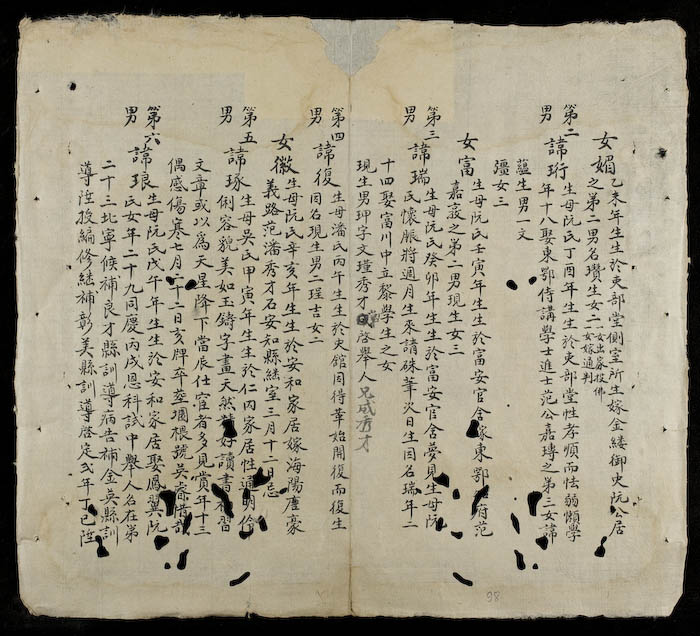 女媚乙未年生生於吏部堂側室所生嫁金縷御史阮公居
之第二男名瓚生女二一女出家投佛一女嫁通判
第二男諱珩生母阮氏丁酉年生生於吏部堂性孝順而怯弱懶學
年十八娶東鄂侍講學士進士范公嘉瑼之第三女諱
蘊生男一文
𤫩女三
女富生母阮氏壬寅年生生於富安官舍嫁東鄂府范
嘉𡩋之第二男現生女三
第三男諱瑞生母阮氏癸卯年生生於富安官舍夢見生母阮
氏懷脹將週月生來請硃筆次日生因名瑞年二
十四娶富川中立黎學生之女
現生男珅字文瑾秀才啓舉人兄成秀才
第四男諱復生母潘氏丙午年生生於史館因得革始開復而復生
因名現生男二珵吉女二
女徽生母阮氏辛亥年生生於安和家居嫁海陽廬豪
義路范潘秀才石安知縣繼室三月十二日忌
第五男諱琢生母吳氏甲寅年生生於仁內家居性通明伶
俐容貌美如玉鑄字畫天然好讀書習
文章或以爲天星降下當辰仕宦者多見賞年十三
偶感傷寒七月二十二日亥牌卒塟壖根號吳睿惜哉
第六男諱琅生母阮氏戊午年生生於安和家居娶鳳翼阮
氏女年二十九同慶丙戌恩科試中舉人名在第
二十三北寧候補良才縣訓導病告補金吳縣訓
導陞授編修繼補彰美縣訓導啓定弍年丁巳陞
98